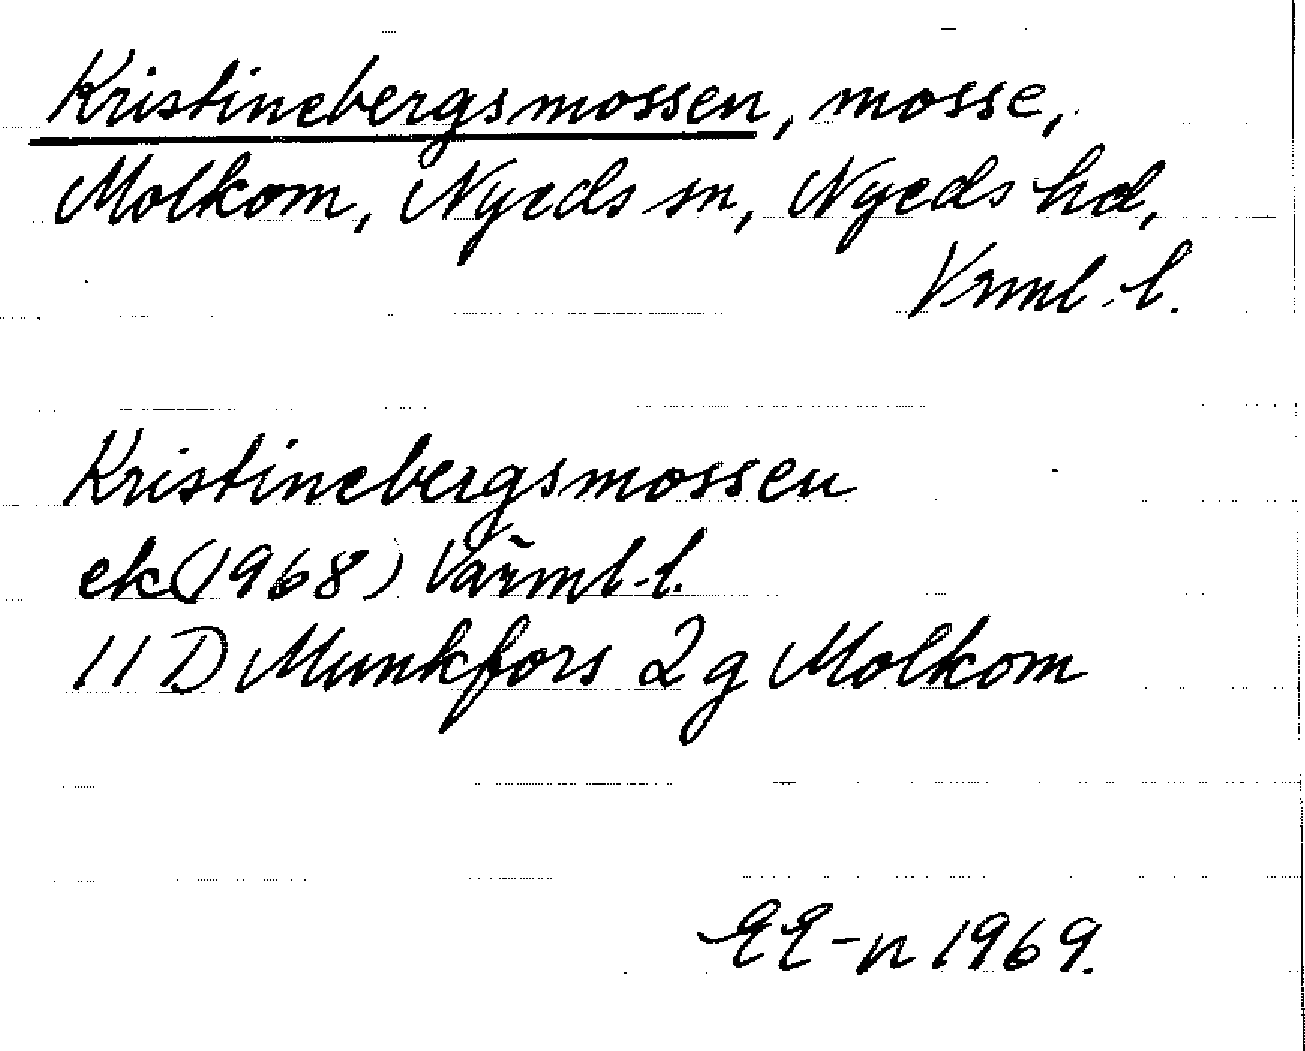 Kristinebergsmossen, mosse,
Molkom, Nyeds sn, Nyeds hd,
Vrml. l.
Kristinebergsmossen
ek (1968) Värml-l.
11 D Munkfors 2 g Molkom
EE-n 1969.